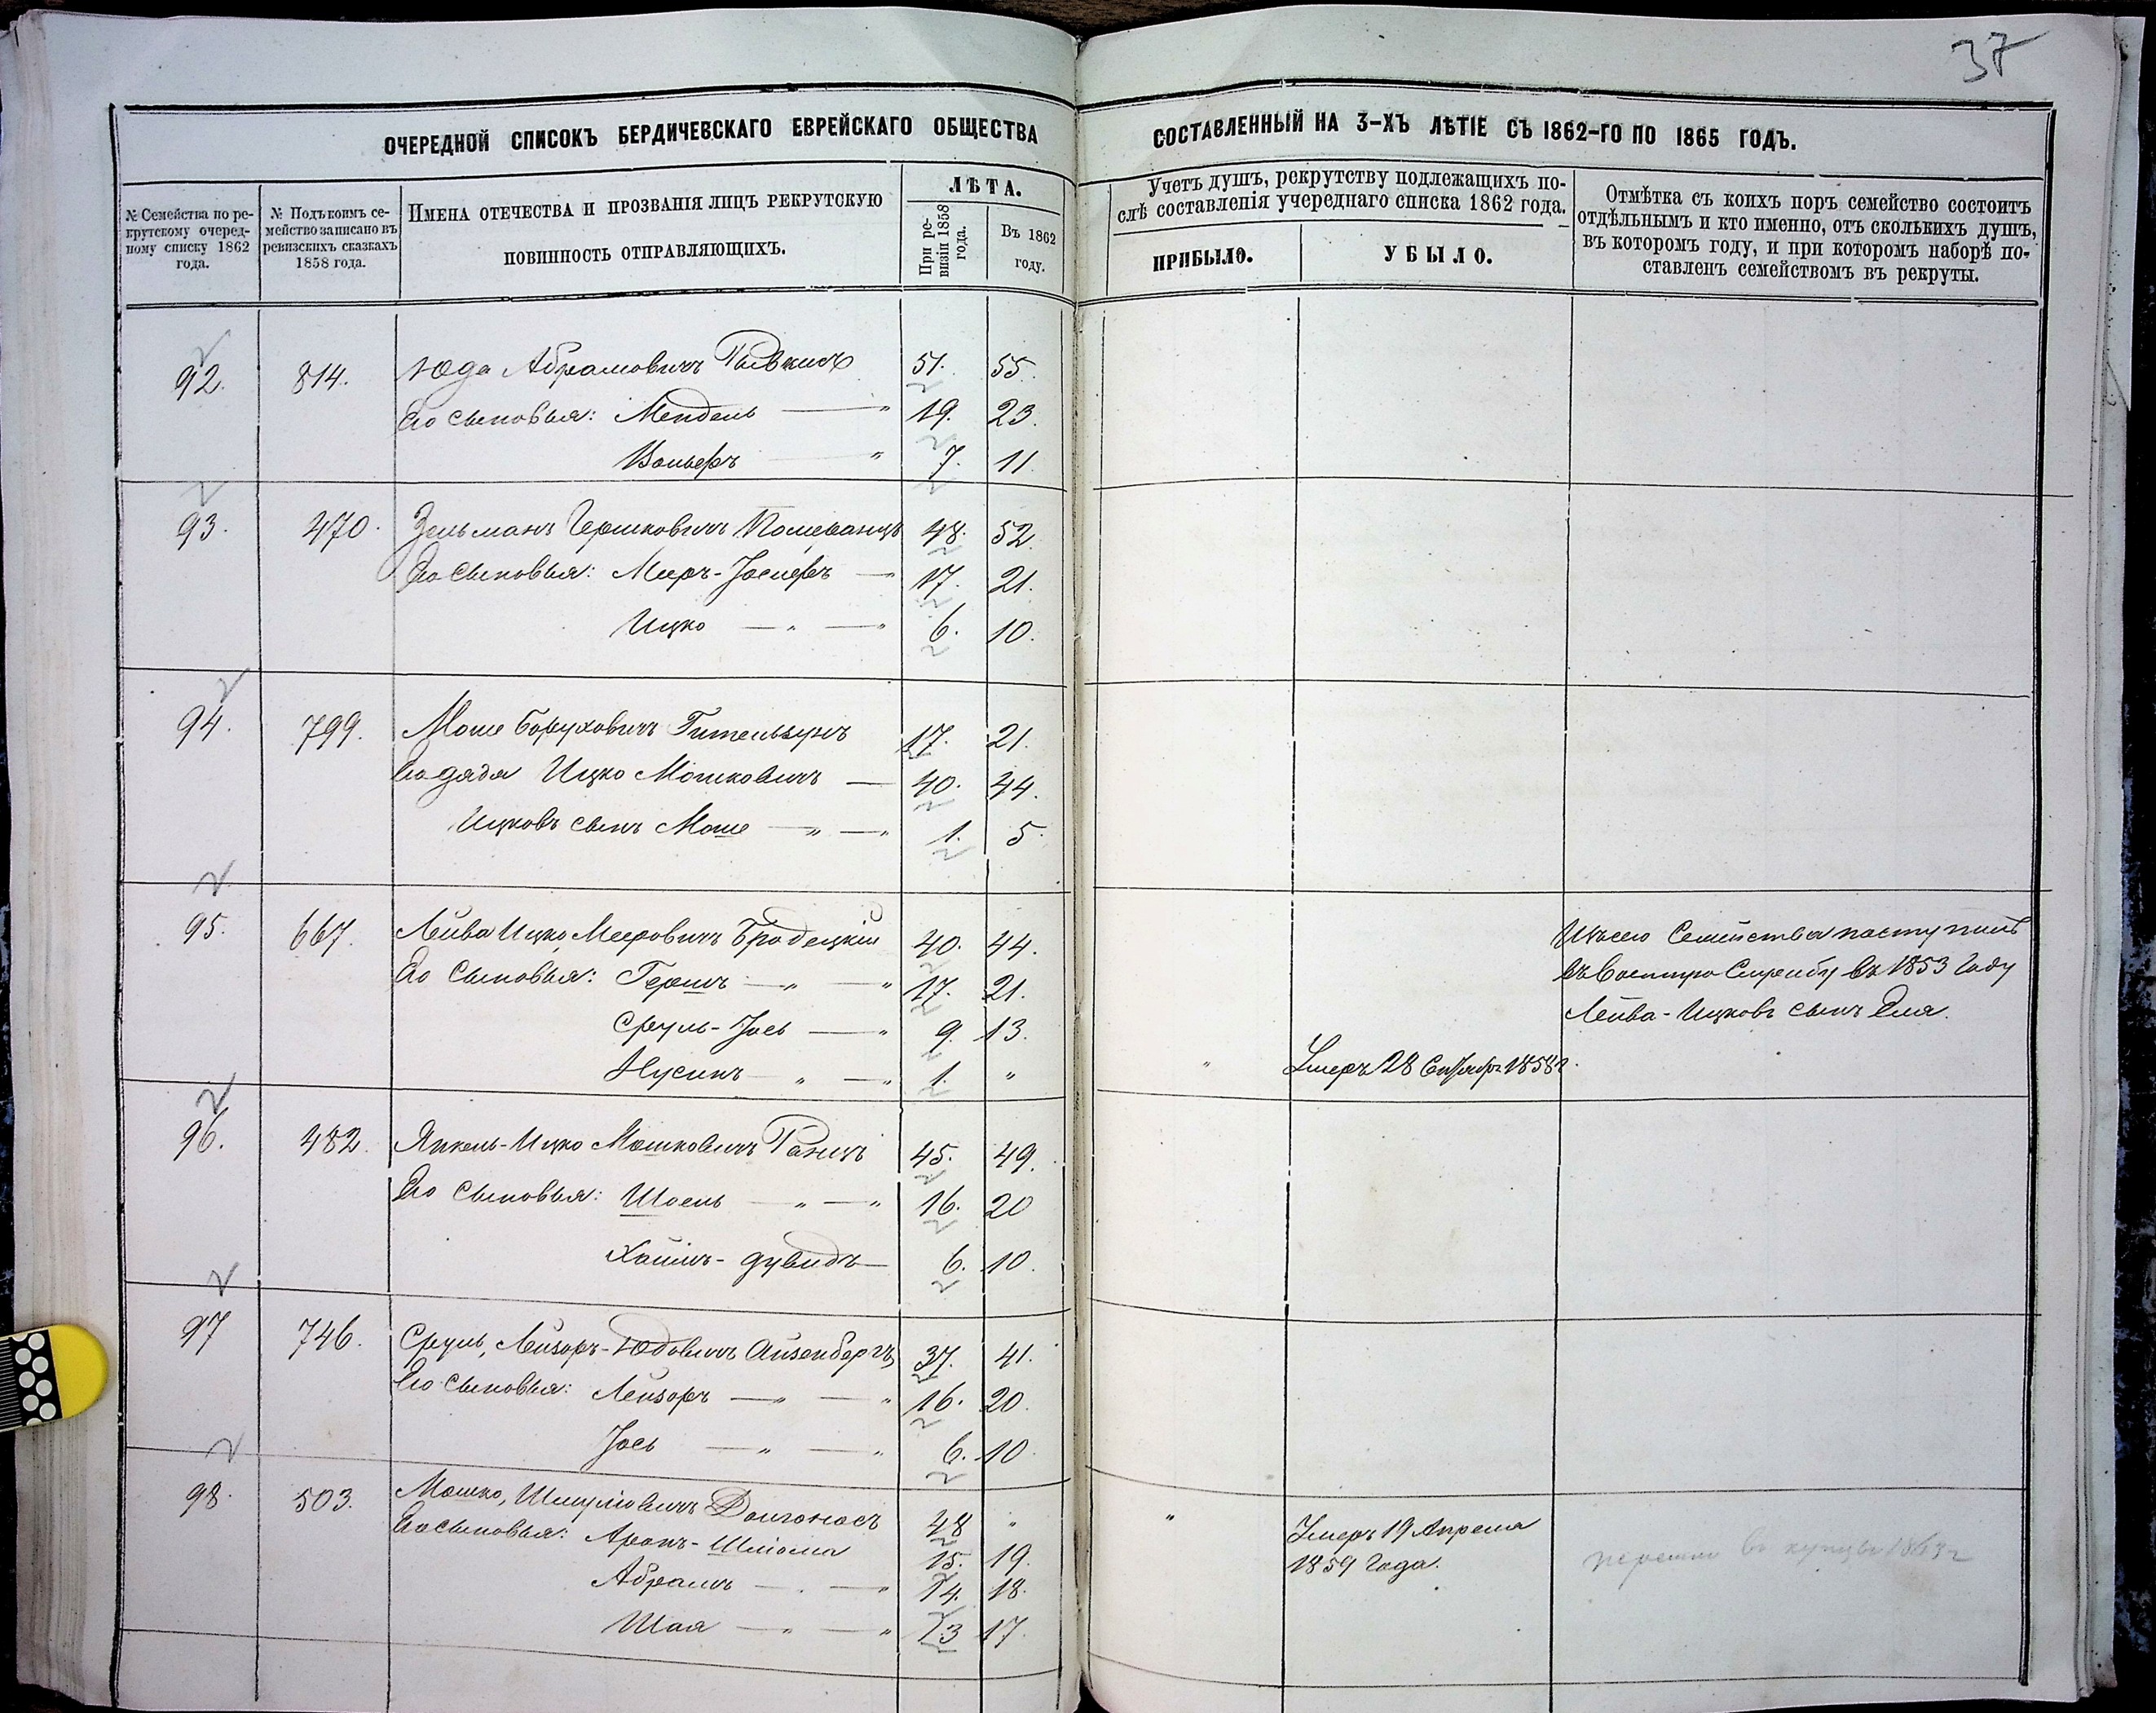 37
ОЧЕРЕДНОЙ СПИСОКЪ БЕРДИЧЕВСКАГО ЕВРЕЙСКАГО ОБЩЕСТВА СОСТАВЛЕННЫЙ НА 3-ХЪ ЛѢТІЕ СЪ 1862-ГО ПО 1865 ГОДЪ.
№ Семейства по рекрутскому очередному списку 1862 года.
№ Подъ коимъ семейство записано въ ревизскихъ сказкахъ 1858 года.
Имена отечества и прозванія лицъ рекрутскую
повинность отправляющихъ.
ЛѢТА.
При ревизіи 1858 года.
Въ 1862 году.
Учетъ душъ, рекрутству подлежащихъ по-
слѣ составленія учереднаго списка 1862 года.
ПРИБЫЛО.
УБЫЛО.
Отмѣтка съ коихъ поръ семейство состоитъ
отдѣльнымъ и кто именно, отъ сколькихъ душъ,
въ которомъ году, и при которомъ наборѣ по-
ставленъ семействомъ въ рекруты.
92. 814. Юда Абрамовичъ 51. 55.
Его сыновья: Мендель — " 19. 23.
Вольфъ — " 7. 11
93. 470. Зельманъ Гершковичъ Померанцъ 48. 52.
Его сыновья: Меръ-Іосифъ — 17. 21.
Ицко — " — " 6. 10.
94. 799. Моше Боруховичъ 17. 21.
Его дядя Ицко Мошковичъ — 40. 44.
Ицковъ сынъ Моше — " — " 1. 5.
95. 667. Лейба Ицко Мееровичъ Бродецкій 40. 44.
Его сыновья: Гершъ — " — " 17. 21.
Сруль-Іось — " 9. 13.
Нусинъ — " — " 1. " " Умеръ 28 Сентября 1858 г.
Изъ сего Семейства поступилъ
въ Службу въ 1853 Году
Лейба-Ицковъ сынъ Еля.
96. 482. Янкель-Ицко Мошковичъ Ганцъ 45. 49.
Его сыновья: Шоель — " — " 16. 20
Хаимъ-Дувидъ — 6. 10.
97 746. Сруль, Лейзоръ-Юдовичъ Айзенбергъ 37. 41.
Его сыновья: Лейзоръ — " — " 16. 20.
Іось — " — " 6. 10
98. 503. Мошко, Шмулювичъ Долгоносъ 48 " " Умеръ 19 Апреля
1859 Года.
Его сыновья: Аронъ-Шлюма 15. 19.
Абрамъ — " — " 14. 18.
Шая — " — " 13 17.
въ купцы